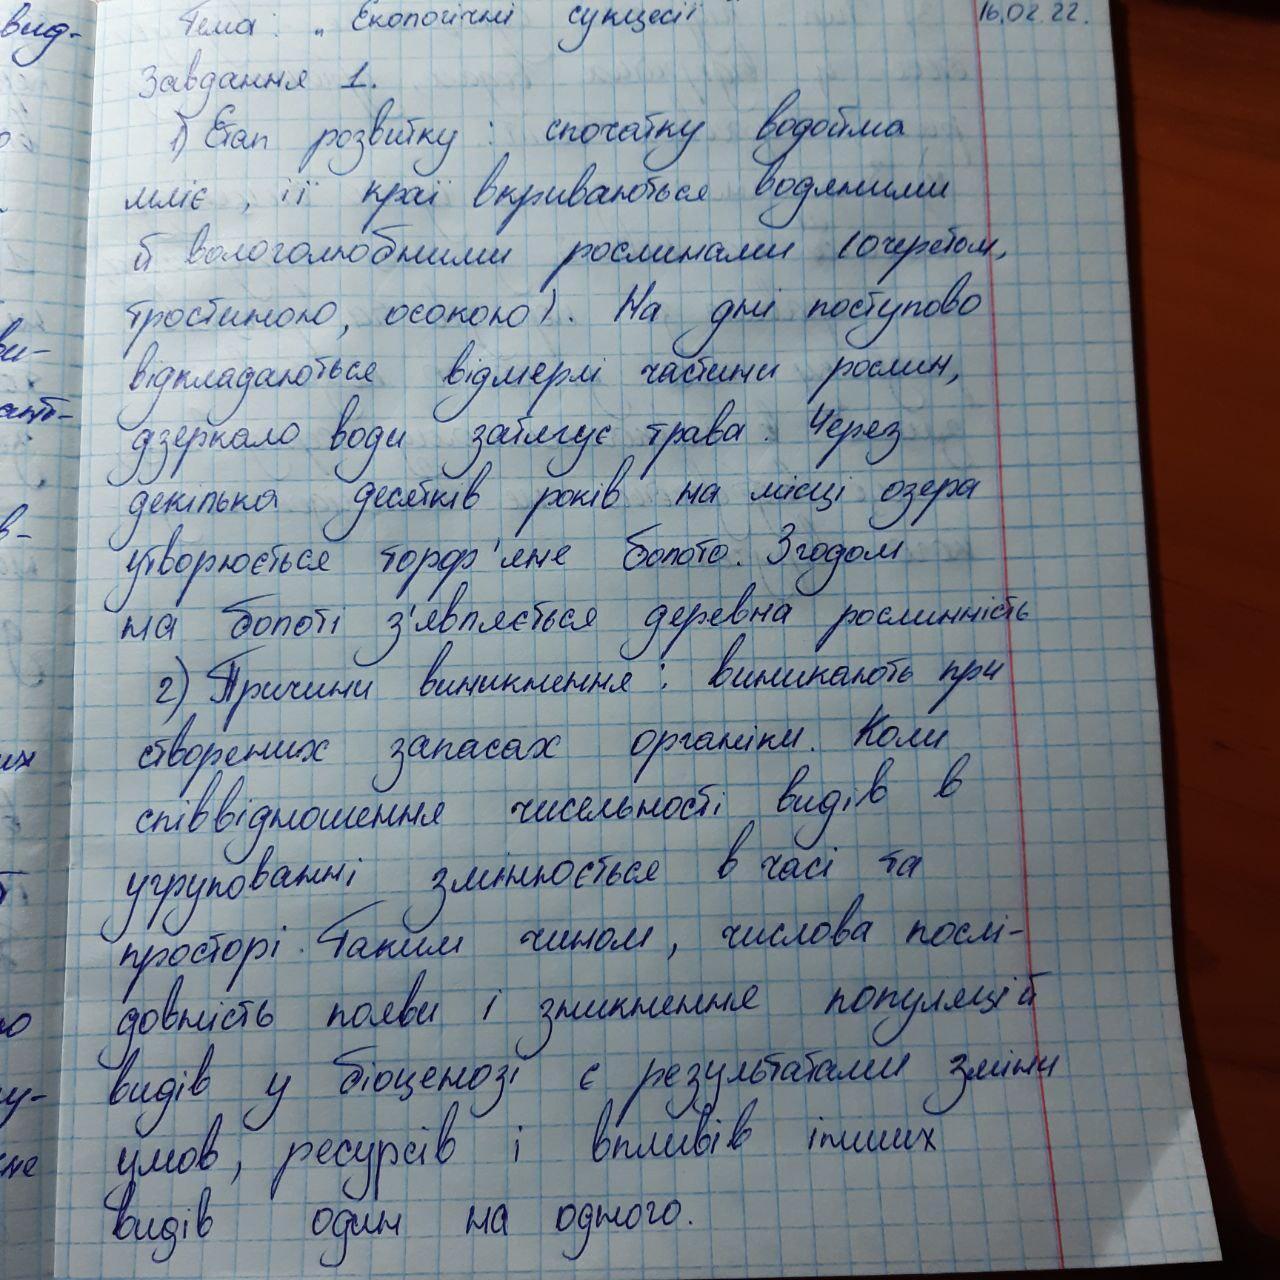 Тема: „Екологічні сукцесії 16.02.22.
Завдання 1.
1) Етап розвитку: спочатку водойма
міліє, її краї вкриваються водяними
й вологолюбними рослинами (очеретом,
тростиною, осокою). На дні поступово
відкладаються відмерлі частини рослин,
дзеркало води затягує трава. Через
декілька десятків років на місці озера
утворюється торф'яне болото. Згодом
на болоті з'являється деревна рослинність
2) Причини виникнення: виникають при
створених запасах органіки. Коли
співвідношення чисельності видів в
угрупованні змінюється в часі та
просторі. Таким чином, числова послі-
довність появи і зникнення популяцій
видів у біоценозі є результатами зміни
умов, ресурсів і впливів інших
видів один на одного.